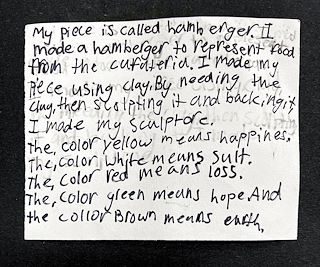 My piece is called hamberger. I
made a hamberger to represent food
from the cufateria. I made my
piece using clay. By needing the
clay, then sculpting it and backing it
I made my sculptore.
The, color yellow means happines.
The, color white means suit.
The, color red means loss.
The, color green means hope. And
the collor Brown means earth,